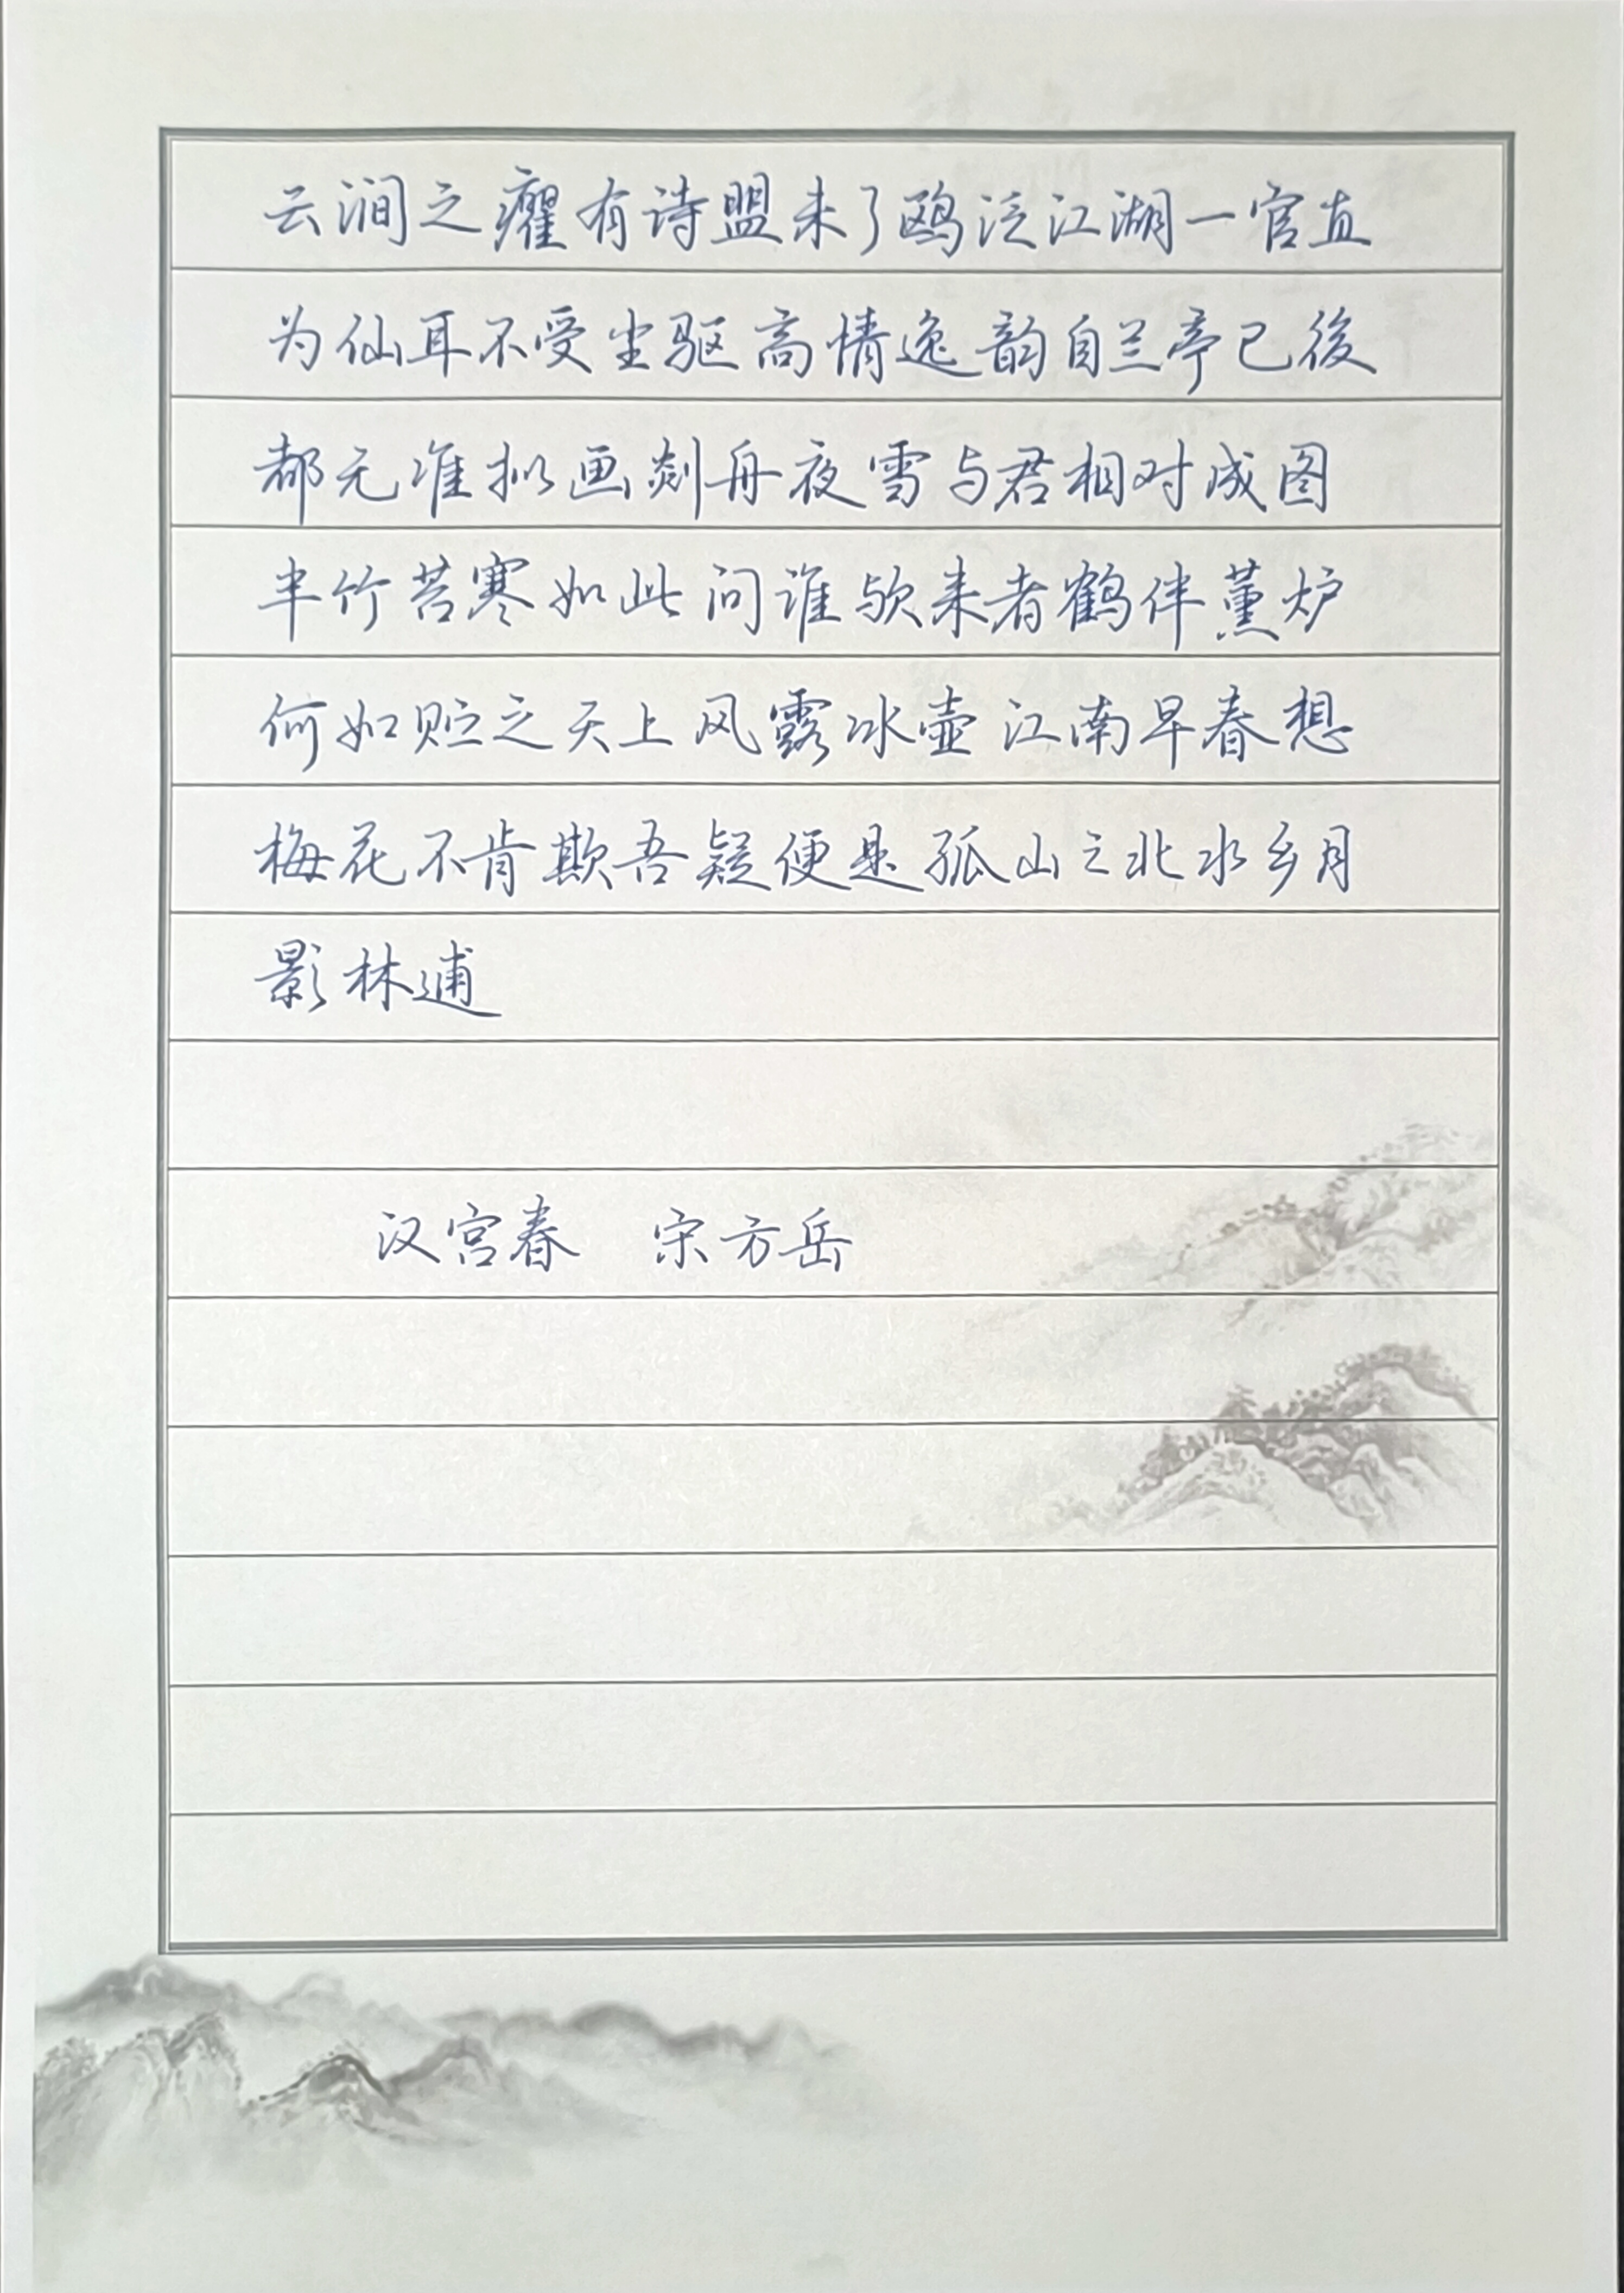 云涧之癯有诗盟未了鸥泛江湖一官直
为仙耳不受尘驱高情逸韵自兰亭已後
都无准拟画剡舟夜雪与君相对成图
半竹苦寒如此问谁欤来者鹤伴薰炉
何如贮之天上风露冰壶江南早春想
梅花不肯欺吾疑便是孤山之北水乡月
影林逋
汉宫春 宋方岳